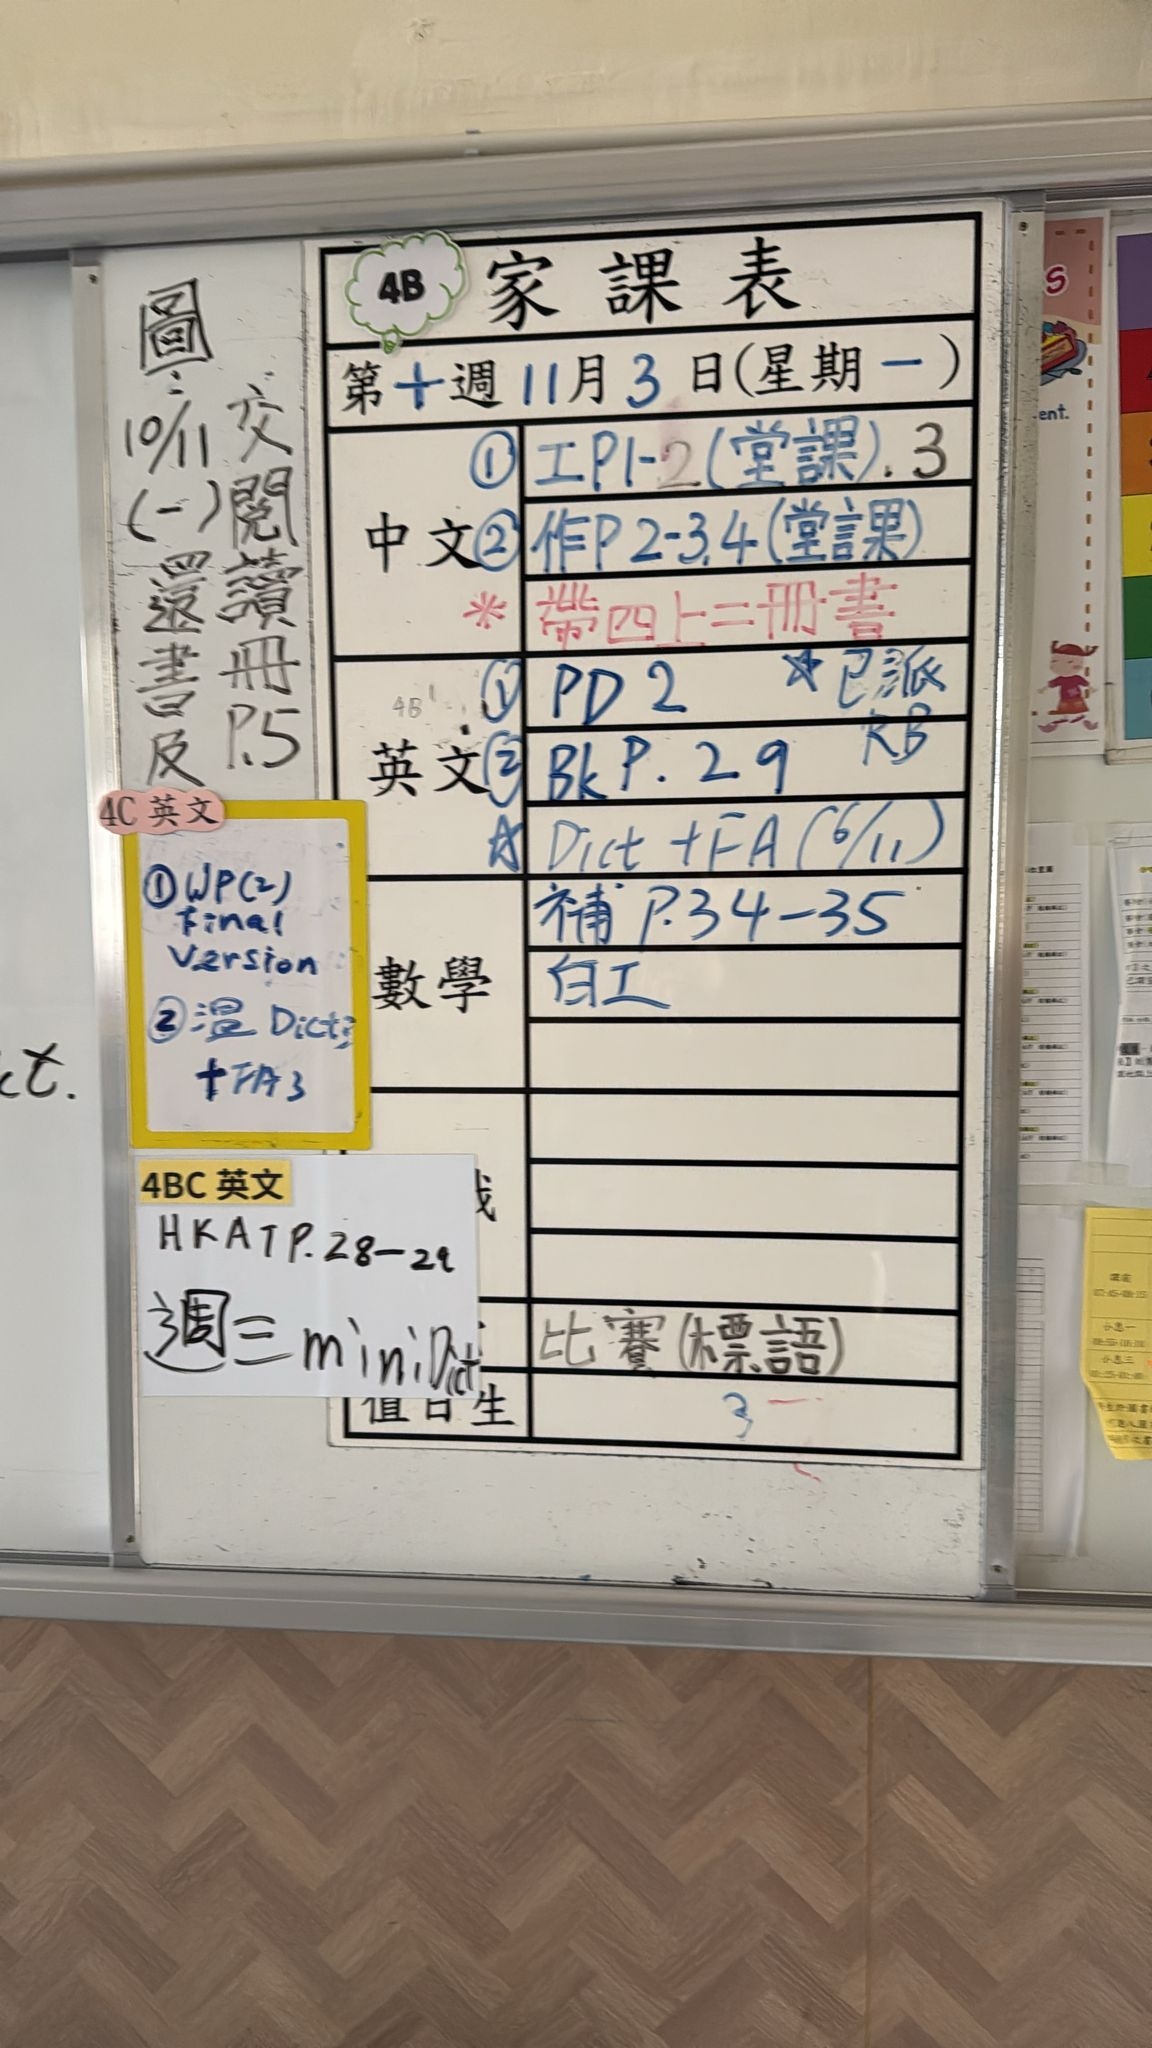 4B 家課表
第十週11月3日(星期一)
中文
① 工P1-2(堂課).3
② 作P2-3,4(堂課)
* 帶四上二冊書
英文
4B
① PD 2 ☆已派
RB
② BkP. 29
☆ Dict + FA (6/11)
數學
補 P.34-35
白工
比賽(標語)
值日生
3
圖:
10/11
(一)
還書及
交閱讀冊
P.5
4C 英文
① WP(2)
Final
Version
② 溫 Dict3
+ FA3
4BC 英文
HKAT P.28-29
週二 miniDict
ct.
ent.